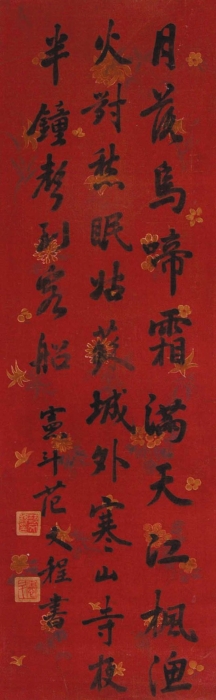 月落烏啼霜滿天江楓漁
火對愁眠姑蘇城外寒山寺夜
半鐘聲到客船 憲斗范文程書